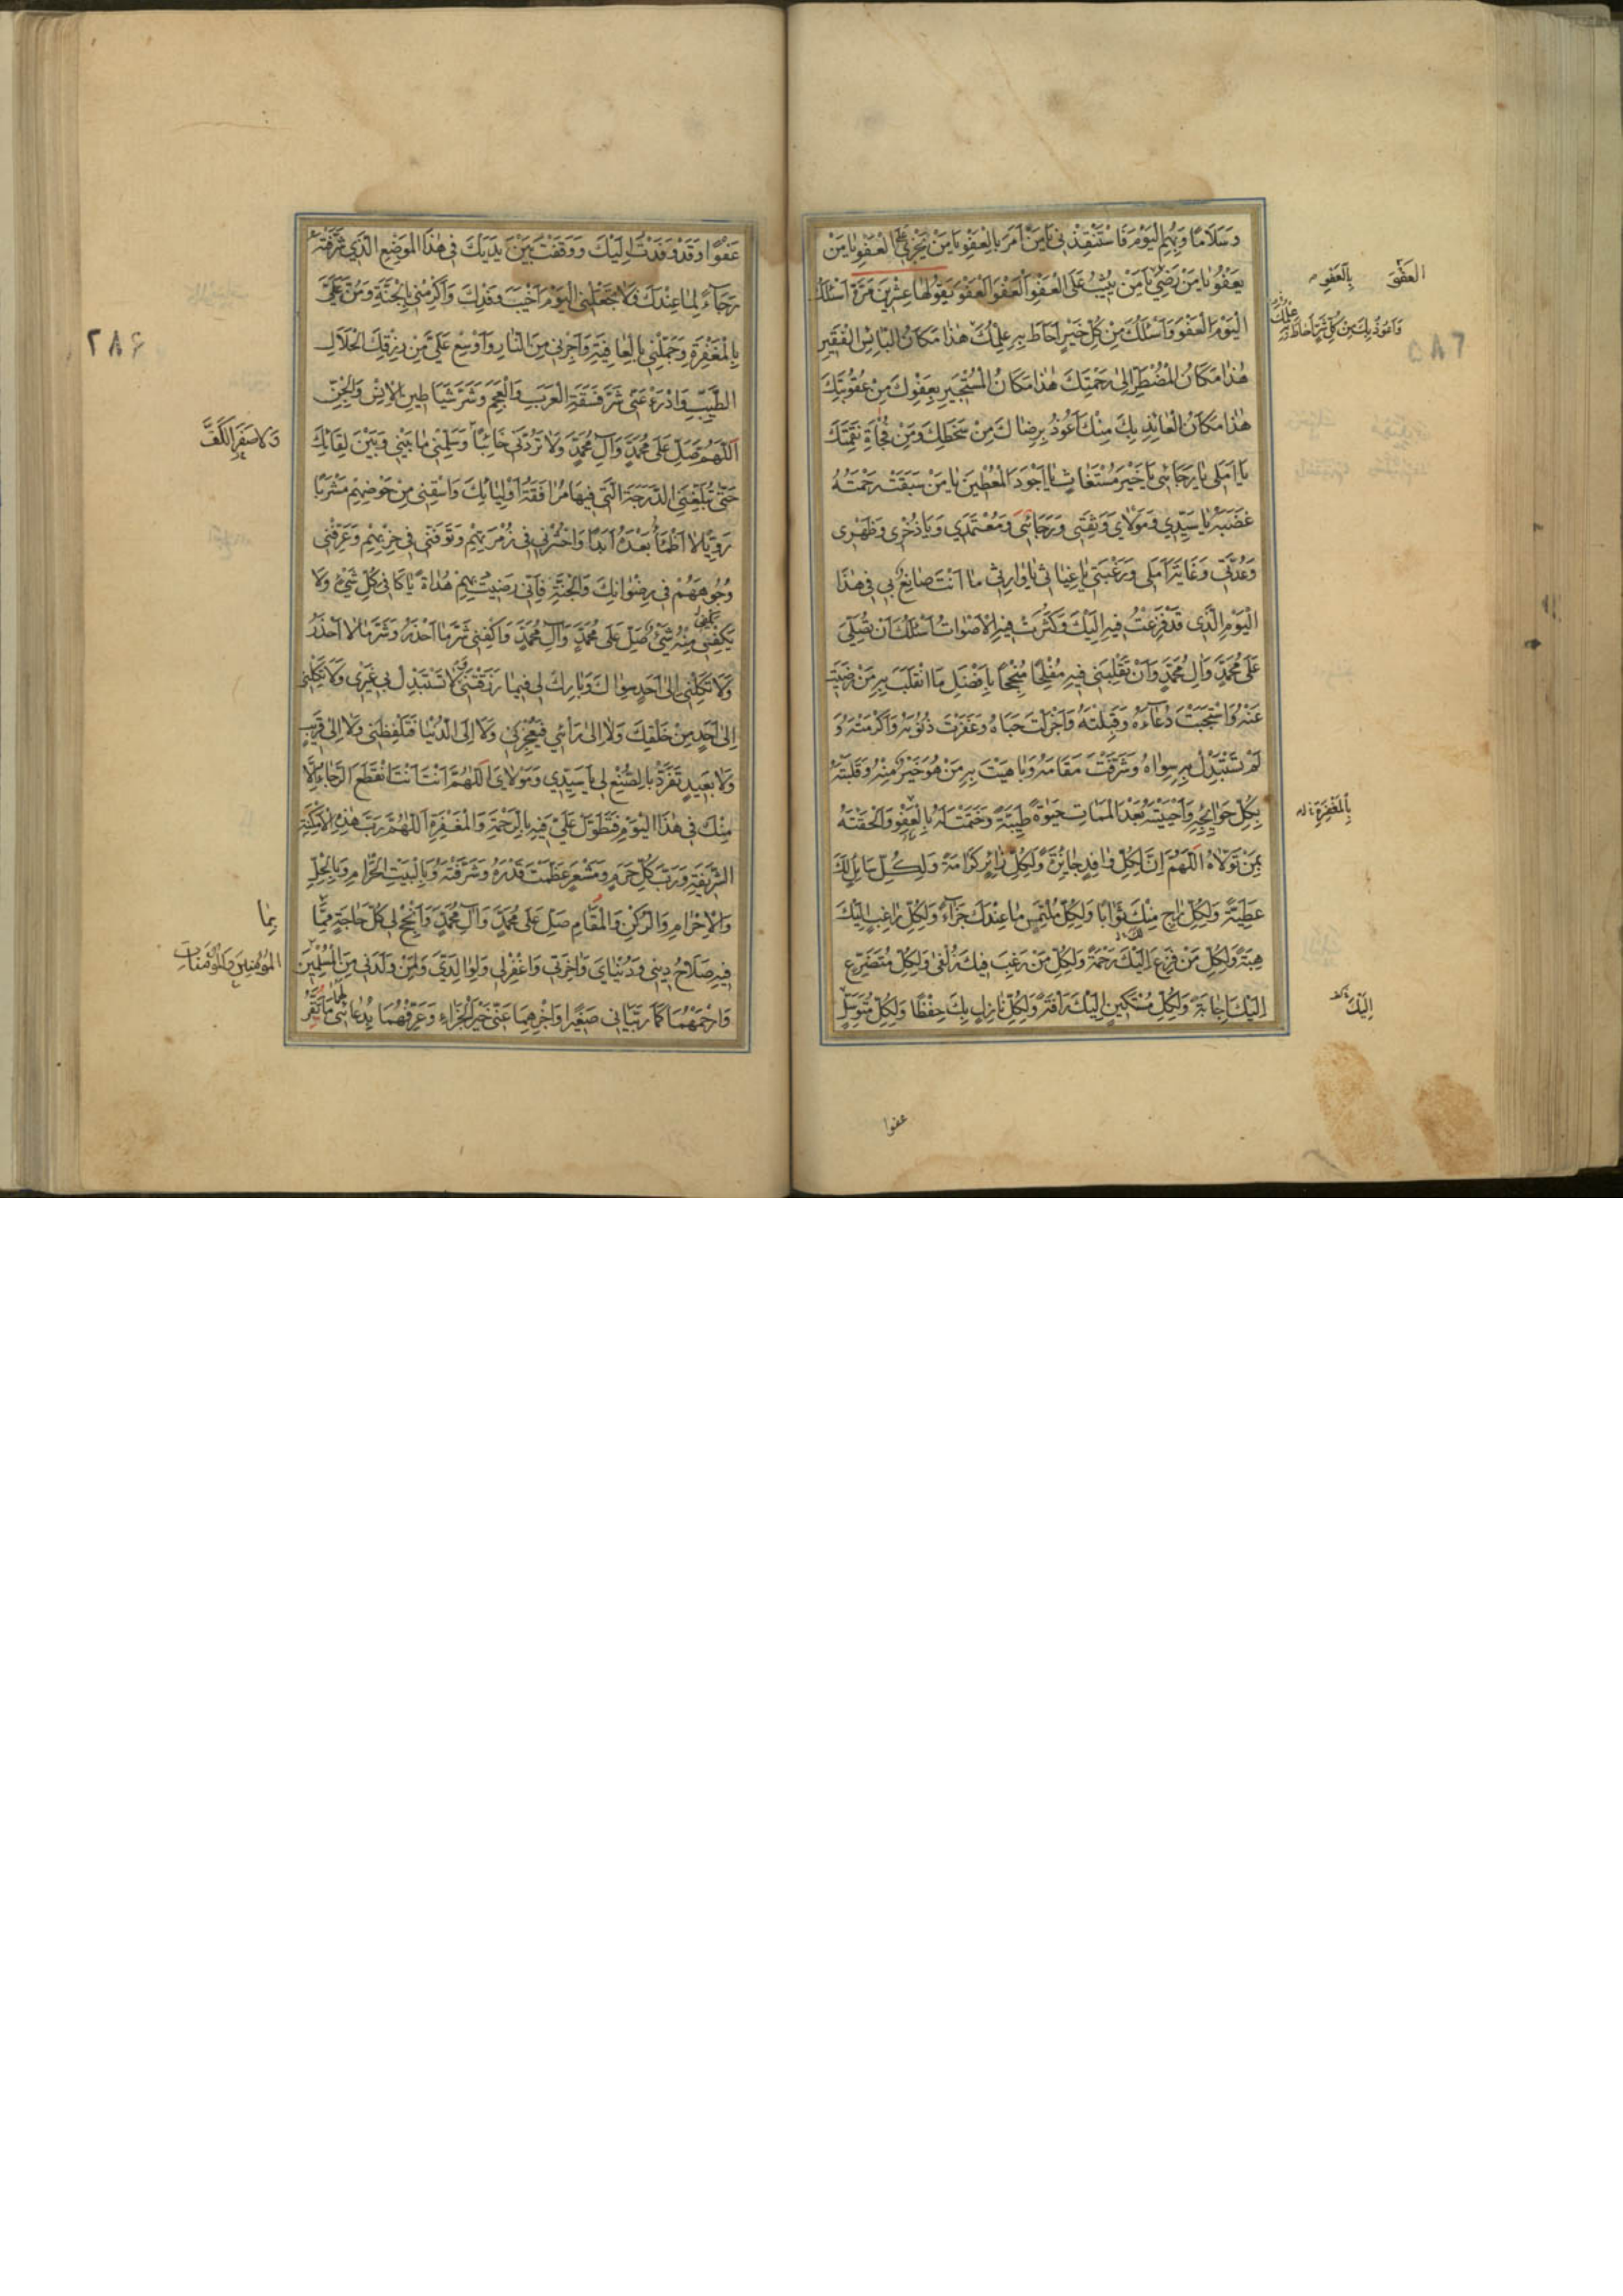 وَسَلَامًا وَبِهِمُ الْيَوْمَ فَاسْتَنْقِذْنِي يَا مَنْ أَمَرَ بِالْعَفْوِ يَا مَنْ يَجْزِي عَلَى الْعَفْوِ يَا مَنْ
يَعْفُو يَا مَنْ رَضِيَ يَا مَنْ يُثِيبُ عَلَى الْعَفْوِ الْعَفْوَ الْعَفْوَ يَقُولُهَا عِشْرِينَ مَرَّةً أَسْئَلُكَ
الْيَوْمَ الْعَفْوَ وَأَسْئَلُكَ مِنْ كُلِّ خَيْرٍ أَحَاطَ بِهِ عِلْمُكَ هٰذَا مَكَانُ الْبَائِسِ الْفَقِيرِ
هٰذَا مَكَانُ الْمُضْطَرِّ إِلَى رَحْمَتِكَ هٰذَا مَكَانُ الْمُسْتَجِيرِ بِعَفْوِكَ مِنْ عُقُوبَتِكَ
هٰذَا مَكَانُ الْعَائِذِ بِكَ مِنْكَ أَعُوذُ بِرِضَاكَ مِنْ سَخَطِكَ وَمِنْ فُجْأَةِ نَقِمَتِكَ
يَا أَمَلِي يَا رَجَائِي يَا خَيْرَ مُسْتَغَاثٍ يَا أَجْوَدَ الْمُعْطِينَ يَا مَنْ سَبَقَتْ رَحْمَتُهُ
غَضَبَهُ يَا سَيِّدِي وَمَوْلَايَ وَثِقَتِي وَرَجَائِي وَمُعْتَمَدِي وَيَا ذُخْرِي وَظَهْرِي
وَعُدَّتِي وَغَايَةَ أَمَلِي وَرَغْبَتِي يَا غِيَاثِي يَا وَارِثِي مَا أَنْتَ صَانِعٌ بِي فِي هٰذَا
الْيَوْمِ الَّذِي قَدْ فَزِعْتُ فِيهِ إِلَيْكَ وَكَثُرَتْ فِيهِ الْأَصْوَاتُ أَسْئَلُكَ أَنْ تُصَلِّيَ
عَلَى مُحَمَّدٍ وَآلِ مُحَمَّدٍ وَأَنْ تَقْلِبَنِي فِيهِ مُفْلِحًا مُنْجِحًا بِأَفْضَلِ مَا انْقَلَبَ بِهِ مَنْ رَضِيتَ
عَنْهُ وَاسْتَجَبْتَ دُعَاءَهُ وَقَبِلْتَهُ وَأَجْزَلْتَ حَبَاهُ وَغَفَرْتَ ذُنُوبَهُ وَأَكْرَمْتَهُ وَ
لَمْ تَسْتَبْدِلْ بِهِ سِوَاهُ وَشَرَّفْتَ مَقَامَهُ وَبَاهَيْتَ بِهِ مَنْ هُوَ خَيْرٌ مِنْهُ وَقَلَبْتَهُ
بِكُلِّ حَوَائِجِهِ وَأَحْيَيْتَهُ بَعْدَ الْمَمَاتِ حَيٰوةً طَيِّبَةً وَخَتَمْتَ لَهُ بِالْعَفْوِ وَأَلْحَقْتَهُ
بِمَنْ تَوَلَّاهُ اَللّٰهُمَّ إِنَّ لِكُلِّ وَافِدٍ جَائِزَةً وَلِكُلِّ زَائِرٍ كَرَامَةً وَلِكُلِّ سَائِلٍ لَكَ
عَطِيَّةً وَلِكُلِّ رَاجٍ مِنْكَ ثَوَابًا وَلِكُلِّ مُلْتَمِسٍ مَا عِنْدَكَ جَزَاءً وَلِكُلِّ رَاغِبٍ إِلَيْكَ
هِبَةً وَلِكُلِّ مَنْ فَزِعَ إِلَيْكَ رَحْمَةً وَلِكُلِّ مَنْ رَغِبَ فِيكَ زُلْفَى وَلِكُلِّ مُتَضَرِّعٍ
إِلَيْكَ إِجَابَةً وَلِكُلِّ مُسْتَكِينٍ إِلَيْكَ رَأْفَةً وَلِكُلِّ نَازِلٍ بِكَ حِفْظًا وَلِكُلِّ مُتَوَسِّلٍ
الْعَفْوَ
بِالْعَفْوِ
وَأَعُوذُ بِكَ مِنْ كُلِّ شَرٍّ أَحَاطَ بِهِ عِلْمُكَ
بِالْمَغْفِرَةِ
إِلَيْكَ
عفوا
عَفْوًا وَقَدْ وَفَدْتُ إِلَيْكَ وَوَقَفْتُ بَيْنَ يَدَيْكَ فِي هٰذَا الْمَوْضِعِ الَّذِي شَرَّفْتَهُ
رَجَاءً لِمَا عِنْدَكَ فَلَا تَجْعَلْنِي الْيَوْمَ أَخْيَبَ وَفْدِكَ وَأَكْرِمْنِي بِالْجَنَّةِ وَمُنَّ عَلَيَّ
بِالْمَغْفِرَةِ وَجَمِّلْنِي بِالْعَافِيَةِ وَأَجِرْنِي مِنَ النَّارِ وَأَوْسِعْ عَلَيَّ مِنْ رِزْقِكَ الْحَلَالِ
الطَّيِّبِ وَادْرَءْ عَنِّي شَرَّ فَسَقَةِ الْعَرَبِ وَالْعَجَمِ وَشَرَّ شَيَاطِينِ الْإِنْسِ وَالْجِنِّ
اَللّٰهُمَّ صَلِّ عَلَى مُحَمَّدٍ وَآلِ مُحَمَّدٍ وَلَا تَرُدَّنِي خَائِبًا وَسَلِّمْنِي مَا بَيْنِي وَبَيْنَ لِقَائِكَ
حَتَّى تُبَلِّغَنِي الدَّرَجَةَ الَّتِي فِيهَا مُرَافَقَةُ أَوْلِيَائِكَ وَاسْقِنِي مِنْ حَوْضِهِمْ مَشْرَبًا
رَوِيًّا لَا أَظْمَأُ بَعْدَهُ أَبَدًا وَاحْشُرْنِي فِي زُمْرَتِهِمْ وَتَوَفَّنِي فِي حِزْبِهِمْ وَعَرِّفْنِي
وُجُوهَهُمْ فِي رِضْوَانِكَ وَالْجَنَّةِ فَإِنِّي رَضِيتُ بِهِمْ هُدَاةً يَا كَافِيَ كُلِّ شَيْءٍ وَلَا
يَكْفِي مِنْهُ شَيْءٌ صَلِّ عَلَى مُحَمَّدٍ وَآلِ مُحَمَّدٍ وَاكْفِنِي شَرَّ مَا أَحْذَرُ وَشَرَّ مَا لَا أَحْذَرُ
وَلَا تَكِلْنِي إِلَى أَحَدٍ سِوَاكَ وَبَارِكْ لِي فِيمَا رَزَقْتَنِي وَلَا تَسْتَبْدِلْ بِي غَيْرِي وَلَا تَكِلْنِي
إِلَى أَحَدٍ مِنْ خَلْقِكَ وَلَا إِلَى رَأْيِي فَيُعْجِزَنِي وَلَا إِلَى الدُّنْيَا فَتَلْفِظَنِي وَلَا إِلَى قَرِيبٍ
وَلَا بَعِيدٍ تَفَرَّدْ بِالصُّنْعِ لِي يَا سَيِّدِي وَمَوْلَايَ اَللّٰهُمَّ أَنْتَ أَنْتَ انْقَطَعَ الرَّجَاءُ إِلَّا
مِنْكَ فِي هٰذَا الْيَوْمِ فَتَطَوَّلْ عَلَيَّ فِيهِ بِالرَّحْمَةِ وَالْمَغْفِرَةِ اَللّٰهُمَّ رَبَّ هٰذِهِ الْأَمْكِنَةِ
الشَّرِيفَةِ وَرَبَّ كُلِّ حَرَمٍ وَمَشْعَرٍ عَظَّمْتَ قَدْرَهُ وَشَرَّفْتَهُ وَبِالْبَيْتِ الْحَرَامِ وَبِالْحِلِّ
وَالْإِحْرَامِ وَالرُّكْنِ وَالْمَقَامِ صَلِّ عَلَى مُحَمَّدٍ وَآلِ مُحَمَّدٍ وَأَنْجِحْ لِي كُلَّ حَاجَةٍ مِمَّا
فِيهِ صَلَاحُ دِينِي وَدُنْيَايَ وَآخِرَتِي وَاغْفِرْ لِي وَلِوَالِدَيَّ وَلِمَنْ وَلَدَنِي مِنَ الْمُسْلِمِينَ
وَارْحَمْهُمَا كَمَا رَبَّيَانِي صَغِيرًا وَاجْزِهِمَا عَنِّي خَيْرَ الْجَزَاءِ وَعَرِّفْهُمَا بِدُعَائِي لَهُمَا مَا تُقِرُّ
٢٨۶
وَلَا صِفْرَ الْكَفِّ
بِمَا
الْمُؤْمِنِينَ وَالْمُؤْمِنَاتِ